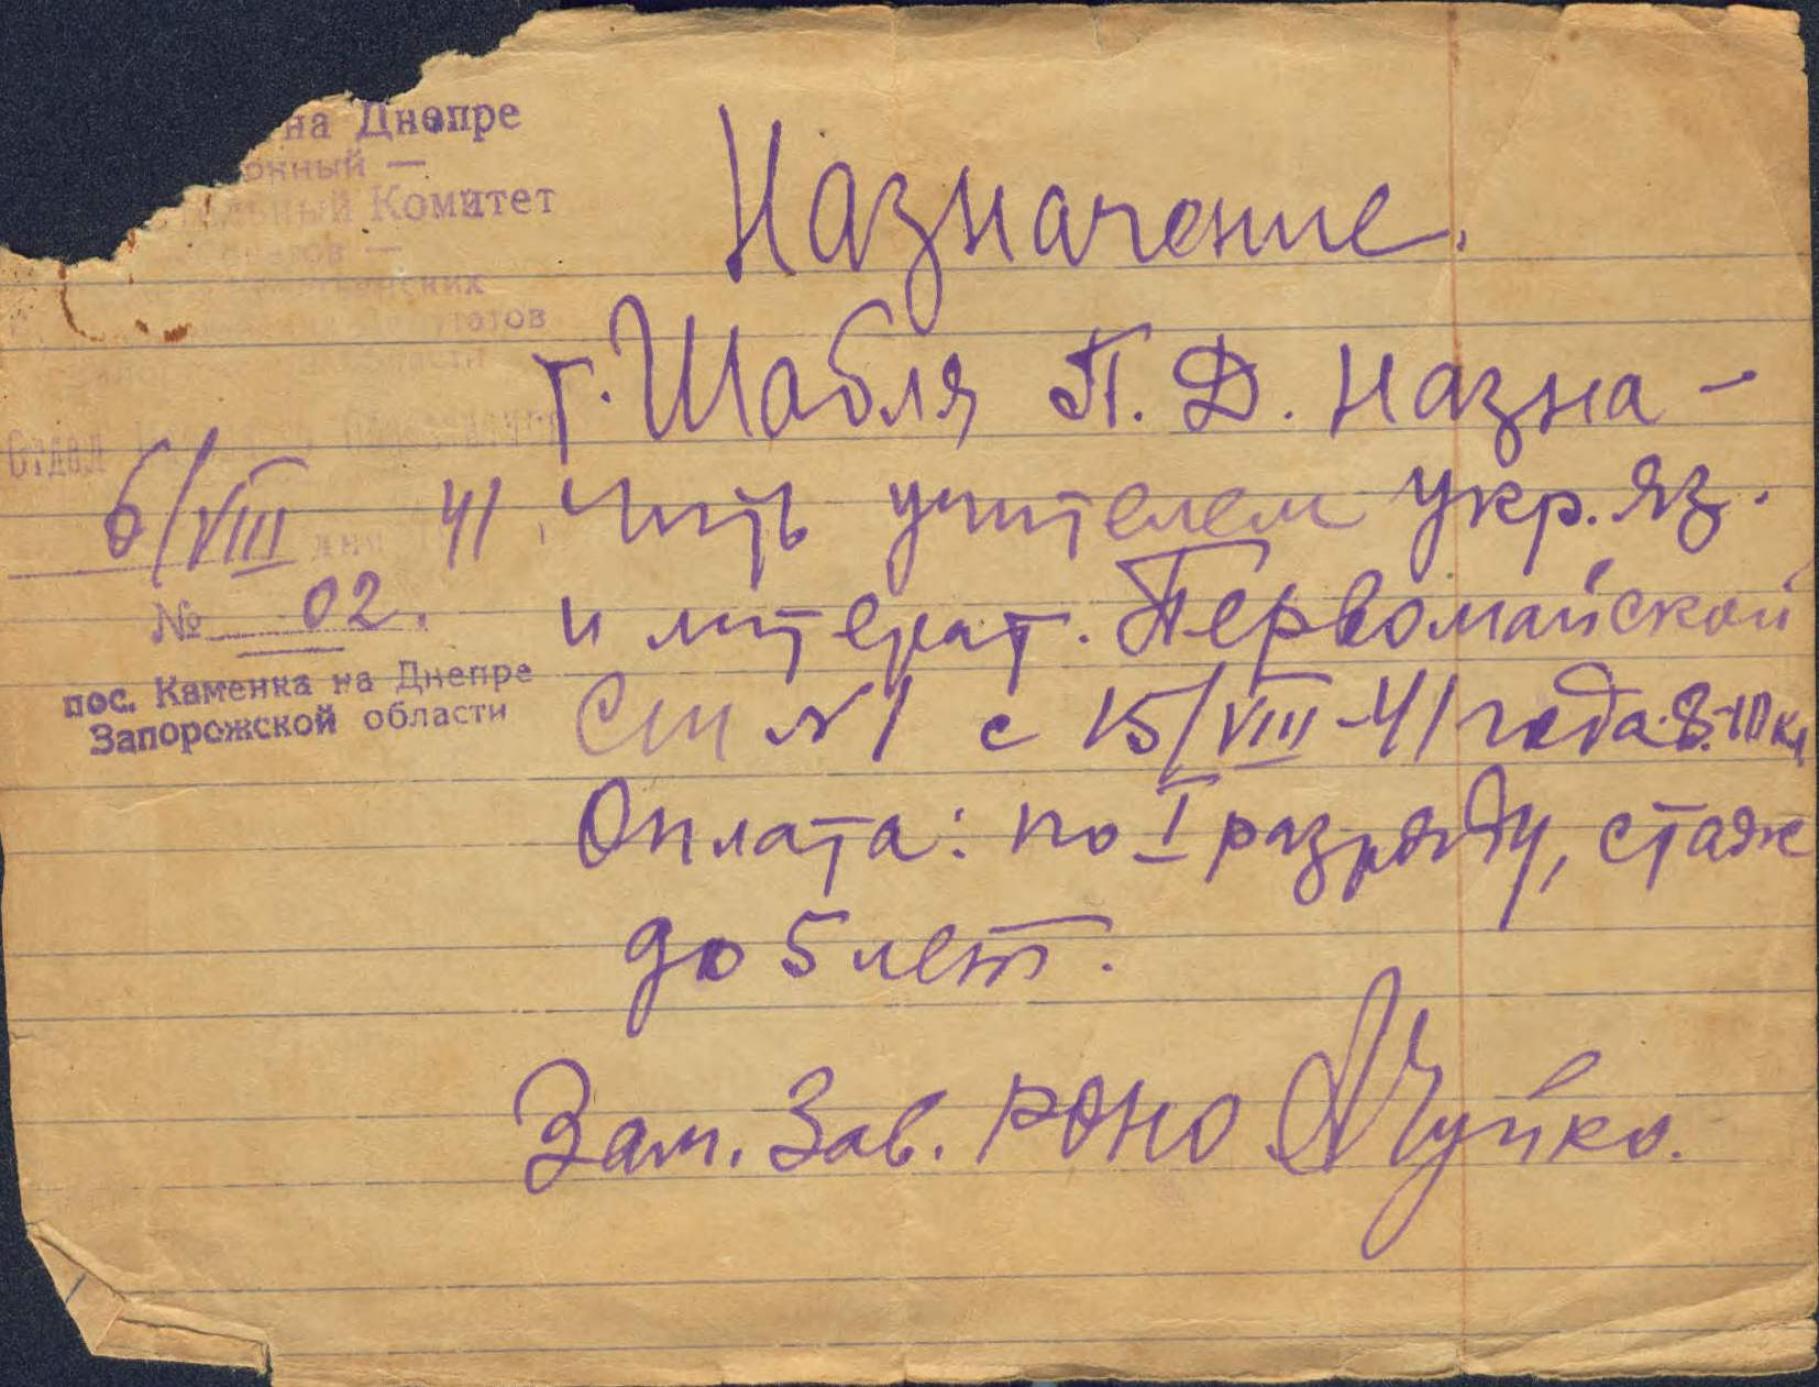 на Днепре
онный —
тельный Комитет
ветов —
депутатов
Отдел
6/VIII 41
№ 02.
пос. Каменка на Днепре
Запорожской области
Назначение.
г. Шабля П. Д. назна-
чить учителем укр. яз.
и литерат. Первомайской
СШ №1 с 15/VIII-41 года 8-10 кл
Оплата: по I разряду, стаж
до 5 лет.
Зам. Зав. РОНО Чуйко.